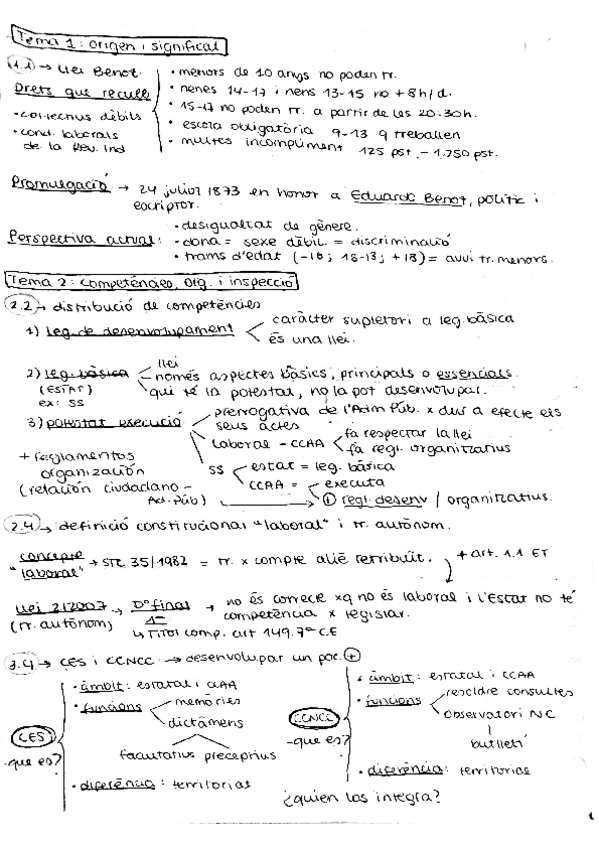 Tema 1: origen i significat
(1.1) → Llei Benot.
Drets que recull
• col·lectius dèbils
• cond. laborals
de la Rev. Ind
• menors de 10 anys no poden tr.
• nenes 14-17 i nens 13-15 no + 8h/d.
• 15-17 no poden tr. a partir de les 20:30h.
• escola obligatòria 9-13 q treballen
• multes incompliment 125 pst. - 1.250 pst.
Promulgació → 24 juliol 1873 en honor a Eduardo Benot, polític i
escriptor.
Perspectiva actual:
• desigualtat de gènere.
• dona = sexe dèbil = discriminació
• trams d'edat (-16; 16-18; +18) = avui tr. menors.
Tema 2: competències, org. i inspecció
(2.2) → distribució de competències
1) leg. de desenvolupament
caràcter supletori a leg. bàsica
és una llei.
2) leg. bàsica
(ESTAT)
ex: SS
llei
només aspectes bàsics, principals o essencials.
qui té la potestat, no la pot desenvolupar.
3) potestat execució
prerrogativa de l'Adm Púb. x dur a efecte els
seus actes
laboral - CCAA
fa respectar la llei
fa regl. organitzatius
+ reglamentos
organización
(relación ciudadano -
Ad. Púb)
SS
estat = leg. bàsica
CCAA =
executa
① regl. desenv / organitzatius.
(2.4) → definició constitucional "laboral" i tr. autònom.
concepte
"laboral"
→ STC 35/1982 = tr. x compte aliè retribuït. + art. 1.1 ET
Llei 2/2007
(tr. autònom)
→ Dª final
1ª
→ no és correcte xq no és laboral i l'Estat no té
competència x legislar.
↳ Títol comp. art 149.7ª CE
3.4 → CES i CCNCC → desenvolupar un poc (+)
CES
-que es?
• àmbit: estatal i CCAA
• funcions
memòries
dictàmens
facultatius preceptius
• diferència: territorias
CCNCC
-que es?
• àmbit: estatal i CCAA
• funcions
resoldre consultes
Observatori NC
butlletí
• diferència: territorias
¿quien los integra?
1